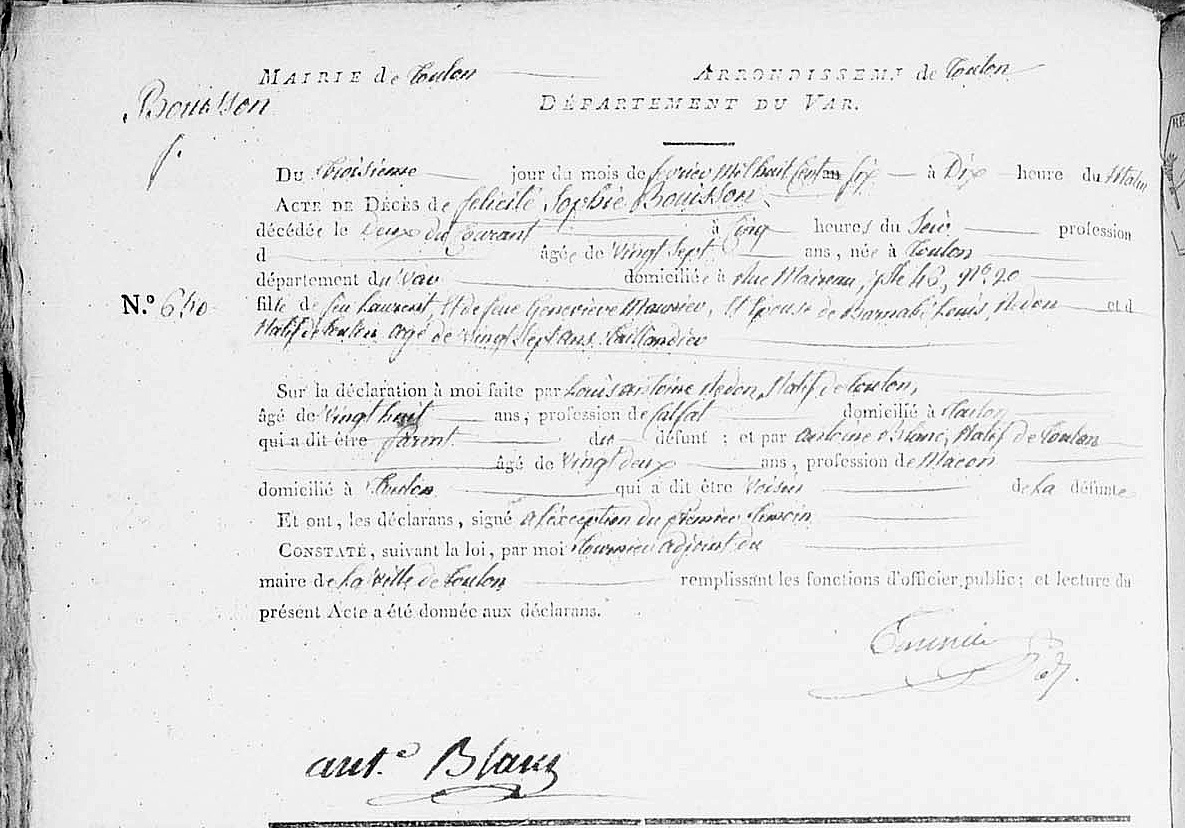 MAIRIE de Toulon ARRONDISSEM.T de Toulon
DÉPARTEMENT DU VAR.
Bouisson
f.
Du troisieme jour du mois de fevrier Mil huit Cent six à Dix heure du Matin
ACTE DE DÉCÈS de felicité Sophie Bouisson
décédée le Deux du Courant à Cinq heures du Soir profession
d âgée de Vingt Sept ans, née à Toulon
département du Var domiciliée à Rue N.º 20
N.º 640
fille de feu Laurent, et de feue Genevieve et Epouse de Barnabé Louis Redon et d
Natif de Toulon agé de Vingt Sept ans Taillandier
Sur la déclaration à moi faite par Louis antoine Redon, Natif de Toulon,
âgé de Vingt huit ans, profession de Calfat domicilié à Toulon
qui a dit être parent du défunt ; et par antoine Blanc, Natif de Toulon
âgé de Vingt deux ans, profession de Maçon
domicilié à Toulon qui a dit être Voisin de La défunte
Et ont, les déclarans, signé a l'exception du premier temoin
CONSTATÉ, suivant la loi, par moi Tournier adjoint du
maire de La Ville de Toulon remplissant les fonctions d'officier public ; et lecture du
présent Acte a été donnée aux déclarans.
Tournier
ant.e Blanc